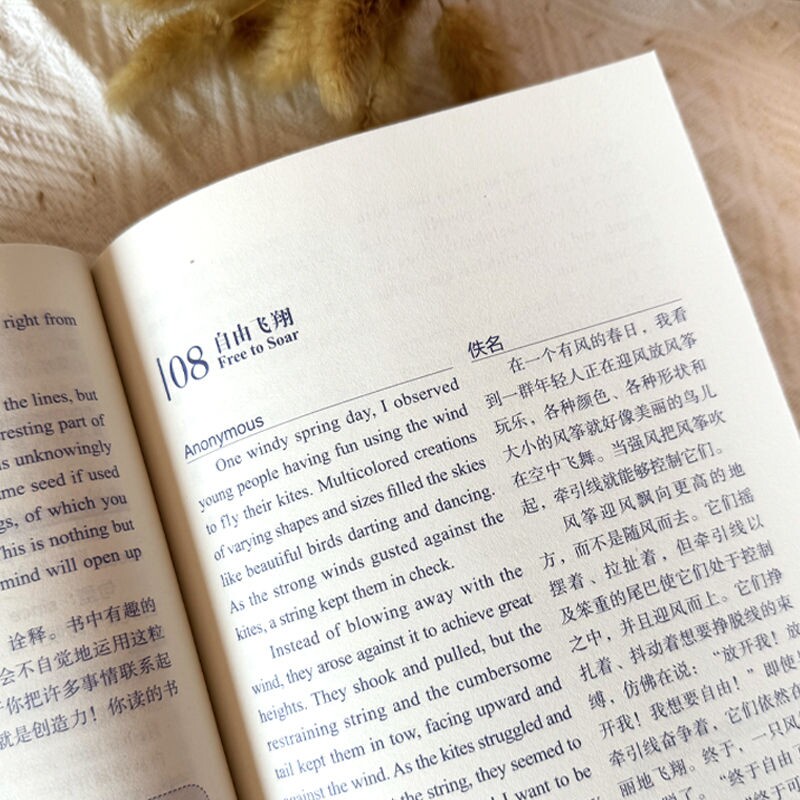 right from
the lines, but
resting part of
s unknowingly
me seed if used
gs, of which you
This is nothing but
mind will open up
诠释。书中有趣的
会不自觉地运用这粒
你把许多事情联系起
就是创造力！你读的书
08
自由飞翔
Free to Soar
Anonymous
One windy spring day, I observed
young people having fun using the wind
to fly their kites. Multicolored creations
of varying shapes and sizes filled the skies
like beautiful birds darting and dancing.
As the strong winds gusted against the
kites, a string kept them in check.
Instead of blowing away with the
wind, they arose against it to achieve great
heights. They shook and pulled, but the
restraining string and the cumbersome
tail kept them in tow, facing upward and
against the wind. As the kites struggled and
the string, they seemed to
I want to be
佚名
在一个有风的春日，我看
到一群年轻人正在迎风放风筝
玩乐，各种颜色、各种形状和
大小的风筝就好像美丽的鸟儿
在空中飞舞。当强风把风筝吹
起，牵引线就能够控制它们。
风筝迎风飘向更高的地
方，而不是随风而去。它们摇
摆着、拉扯着，但牵引线以
及笨重的尾巴使它们处于控制
之中，并且迎风而上。它们挣
扎着、抖动着想要挣脱线的束
缚，仿佛在说：“放开我！放
开我！我想要自由！”即使
牵引线奋争着，它们依然在
丽地飞翔。终于，一只风
“终于自由
“终于可